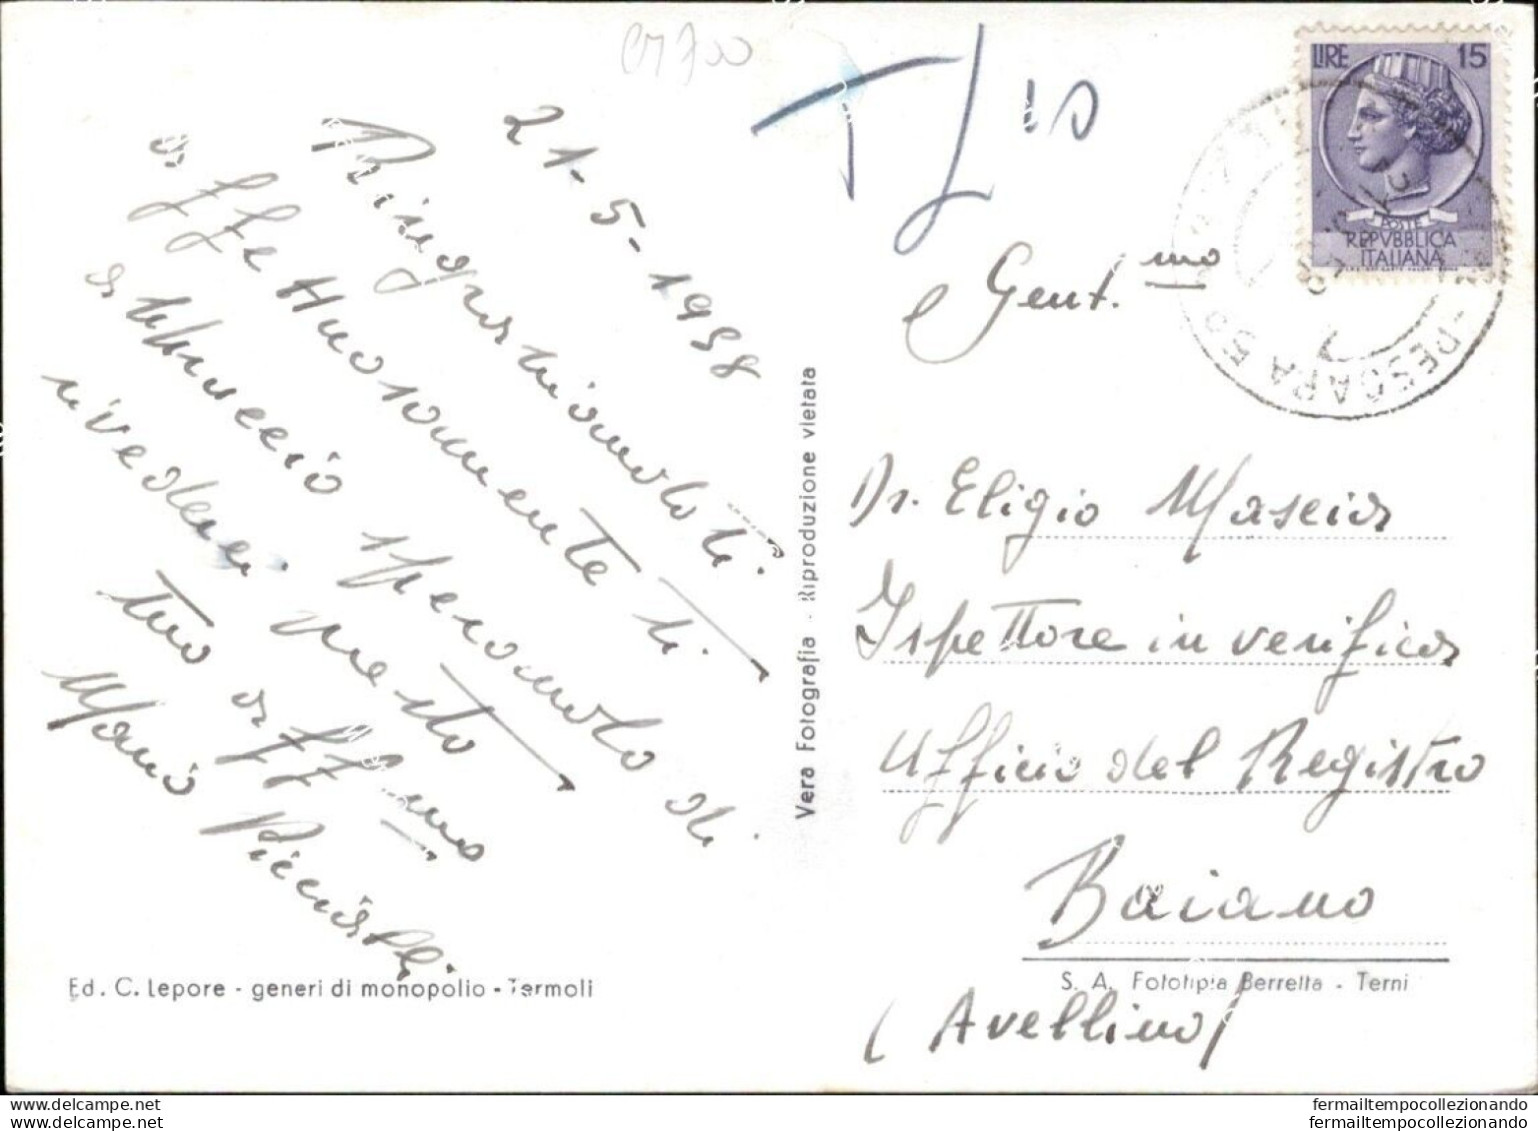 cm700
T £ 10
LIRE 15
POSTE
REPVBBLICA
ITALIANA
PESCARA
21-5-1958
Ringraziandoti
affettuosamente ti
abbraccio sperando di
rivederci presto
tuo aff.mo
Mario
Gent.mo
Dr. Eligio Mascia
Ispettore in verifica
Ufficio del Registro
Baiano
(Avellino)
Vera Fotografia - Riproduzione vietata
Ed. C. Lepore - generi di monopolio - Termoli
S. A. Fototipia Berretta - Terni
fermailtempocollezionando
fermailtempocollezionando
www.delcampe.net
www.delcampe.net